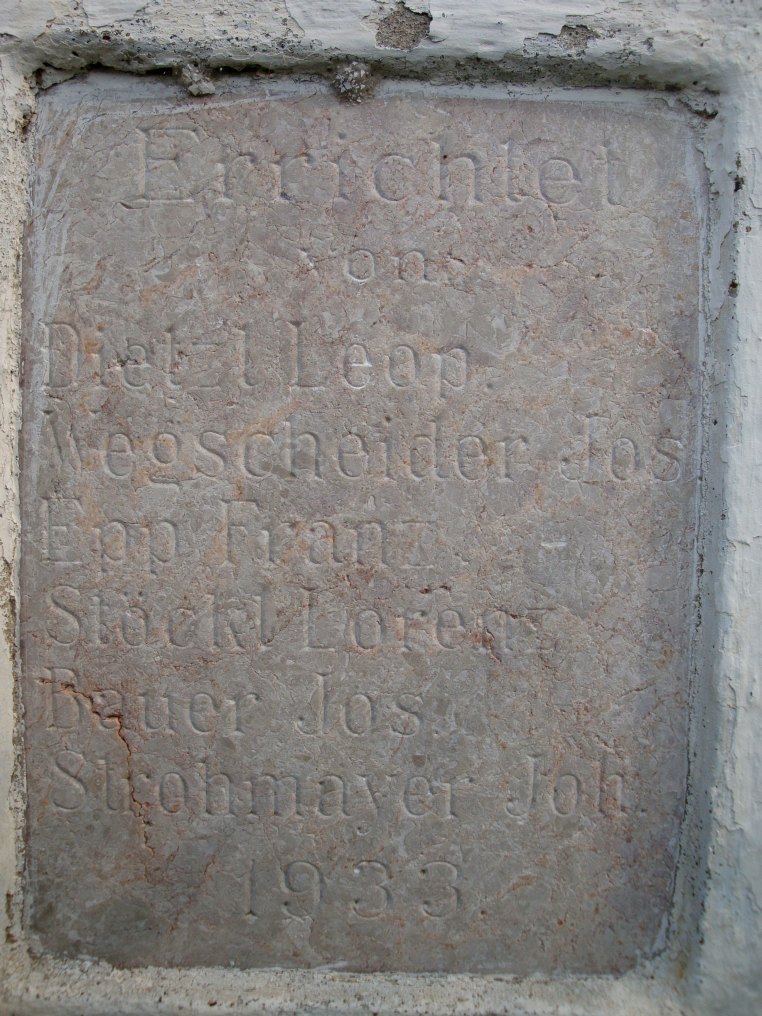 Errichtet
von
Dietzl Leop.
Wegscheider Jos.
Epp Franz.
Stöckl Lorenz
Bauer Jos.
Strohmayer Joh.
1933